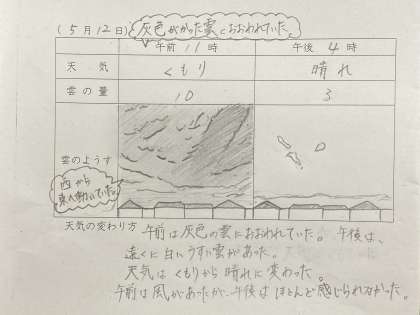 (5月12日) 灰色がかった雲におおわれていた。
午前11時 午後4時
天気 くもり 晴れ
雲の量 10 3
雲のようす
西から
東へ動いていた。
天気の変わり方 午前は灰色の雲におおわれていた。午後は、
遠くに白いうすい雲があった。
天気はくもりから晴れに変わった。
午前は風があったが、午後はほとんど感じられなかった。